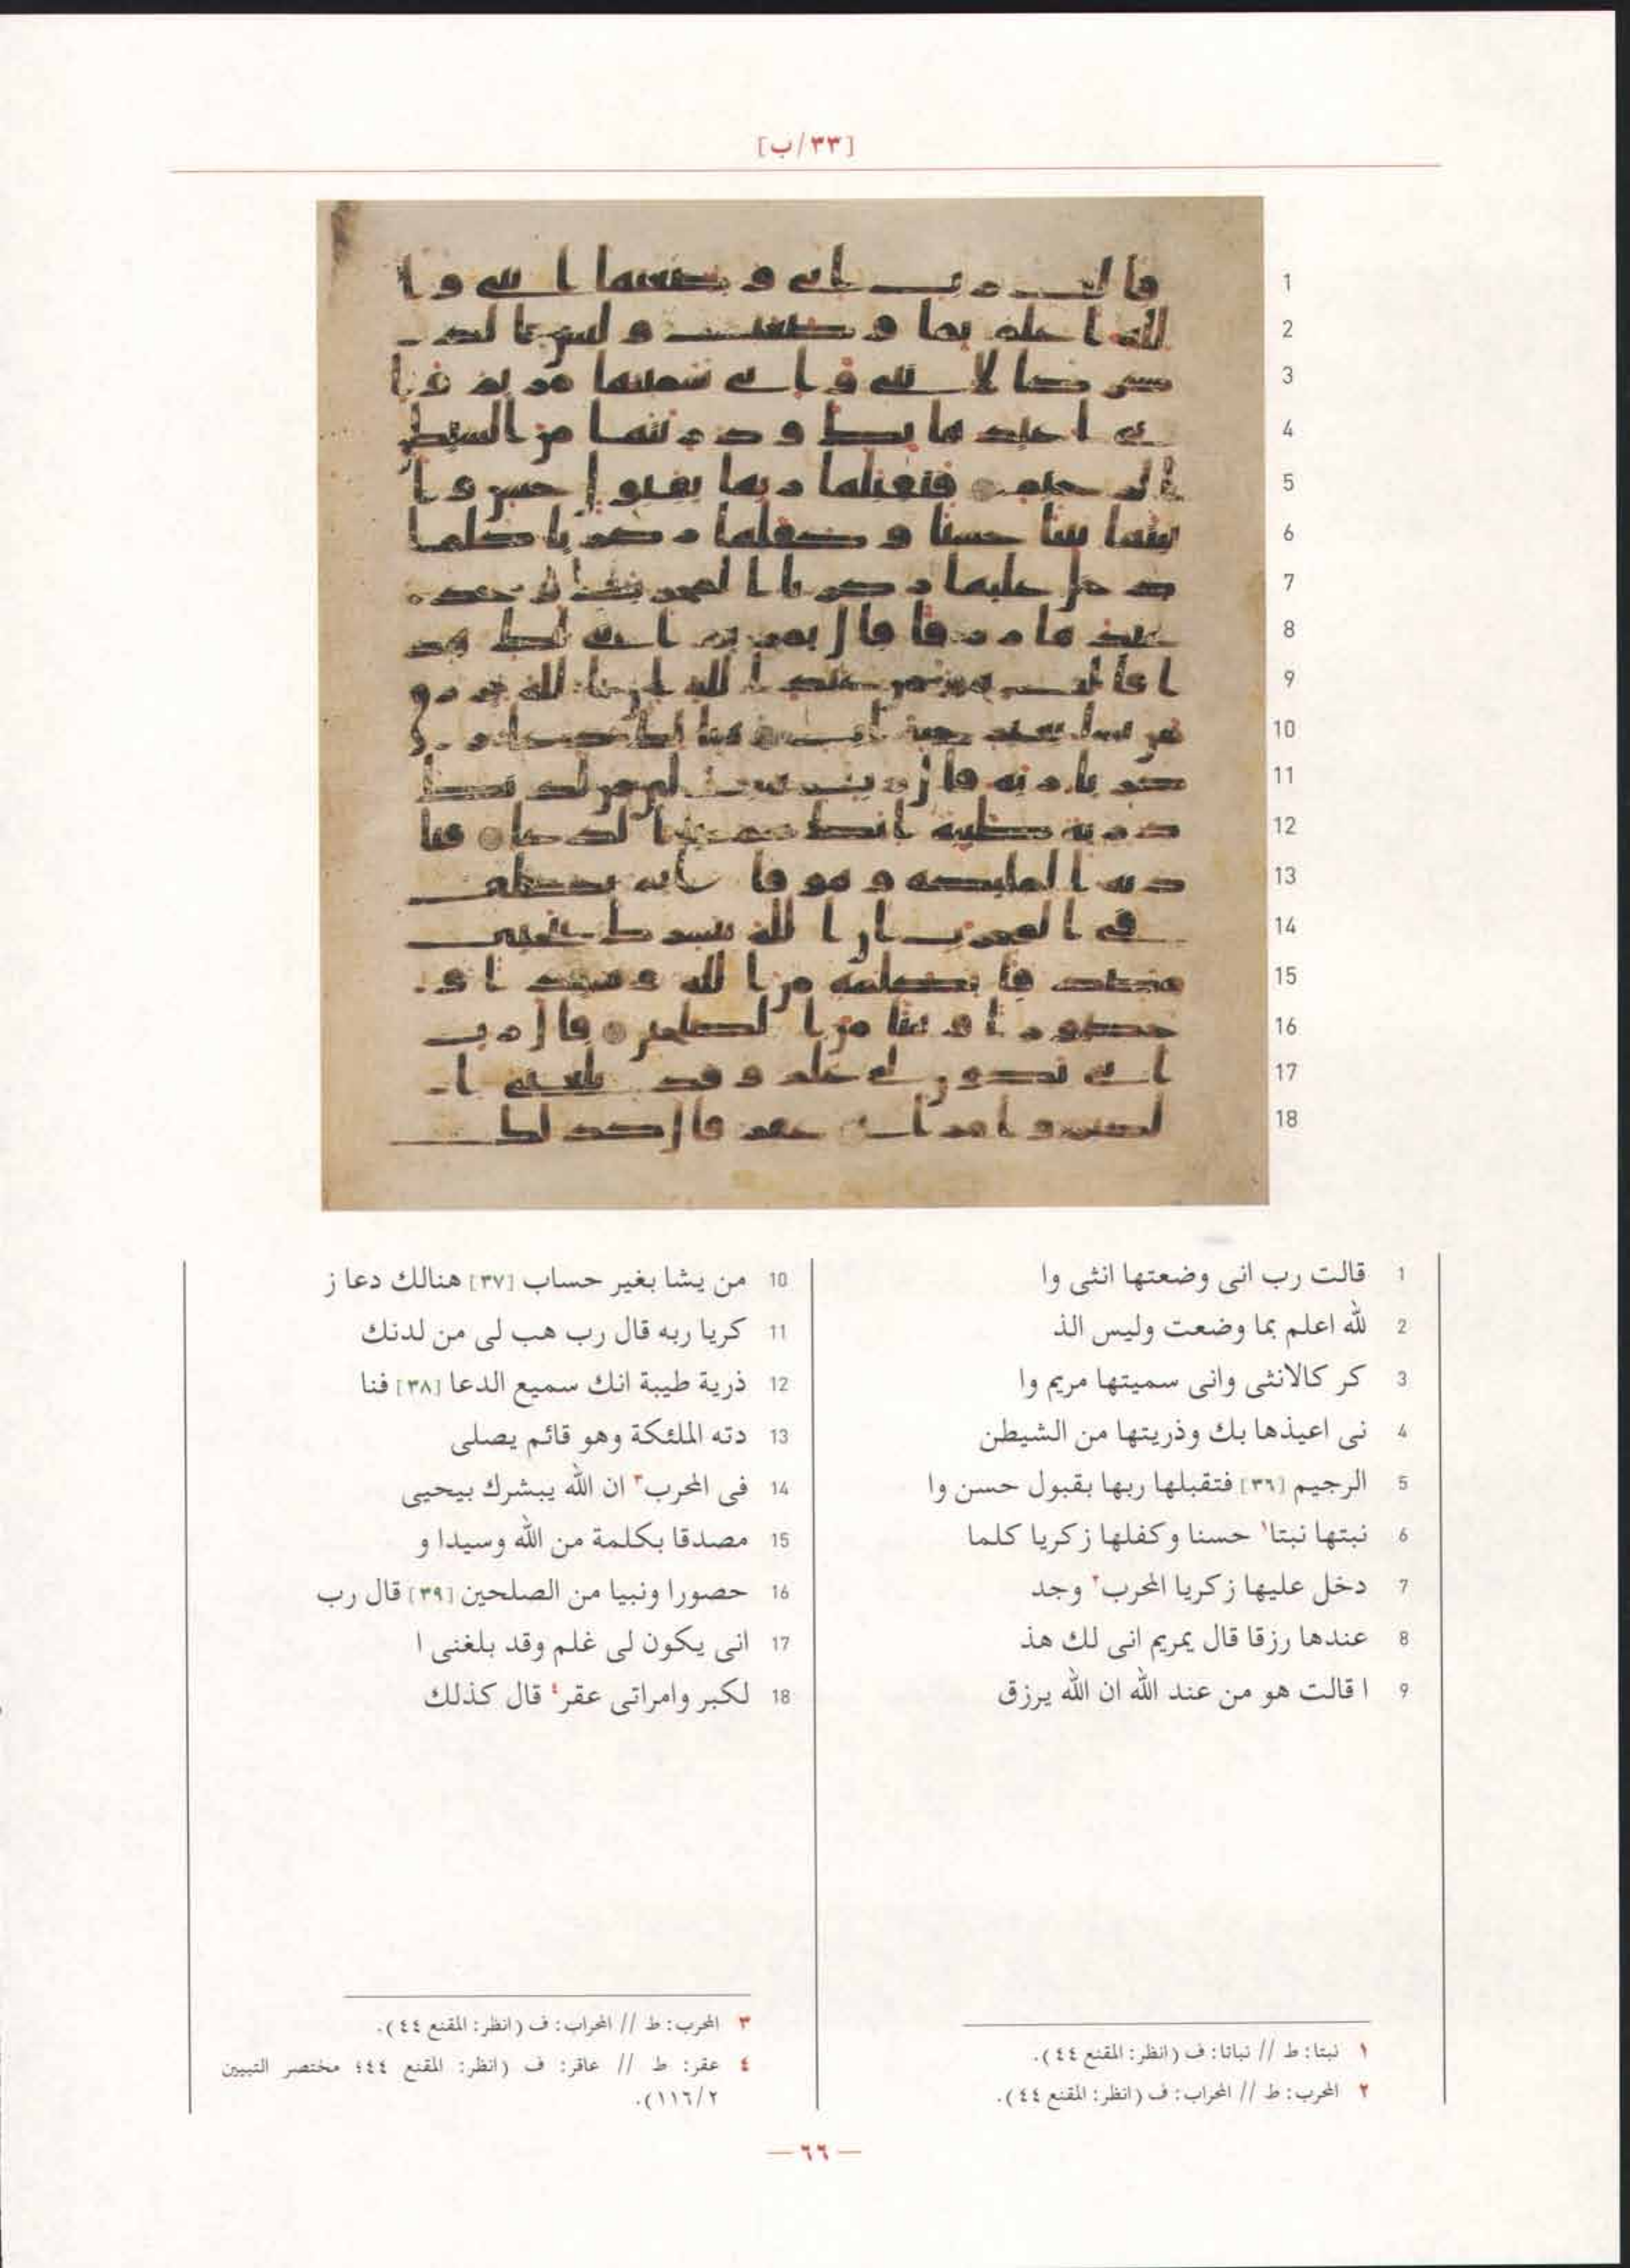 [٣٣/ب]
1 قالت رب انى وضعتها انثى وا
2 لله اعلم بما وضعت وليس الذ
3 كر كالانثى وانى سميتها مريم وا
4 نى اعيذها بك وذريتها من الشيطن
5 الرجيم [٣٦] فتقبلها ربها بقبول حسن وا
6 نبتها نبتا١ حسنا وكفلها زكريا كلما
7 دخل عليها زكريا المحرب٢ وجد
8 عندها رزقا قال يمريم انى لك هذ
9 ا قالت هو من عند الله ان الله يرزق
10 من يشا بغير حساب [٣٧] هنالك دعا ز
11 كريا ربه قال رب هب لى من لدنك
12 ذرية طيبة انك سميع الدعا [٣٨] فنا
13 دته الملئكة وهو قائم يصلى
14 فى المحرب٣ ان الله يبشرك بيحيى
15 مصدقا بكلمة من الله وسيدا و
16 حصورا ونبيا من الصلحين [٣٩] قال رب
17 انى يكون لى غلم وقد بلغنى ا
18 لكبر وامراتى عقر٤ قال كذلك
١ نبتا: ط // نباتا: ف (انظر: المقنع ٤٤).
٢ المحرب: ط // المحراب: ف (انظر: المقنع ٤٤).
٣ المحرب: ط // المحراب: ف (انظر: المقنع ٤٤).
٤ عقر: ط // عاقر: ف (انظر: المقنع ٤٤؛ مختصر التبيين
٢/١١٦).
— ٦٦ —